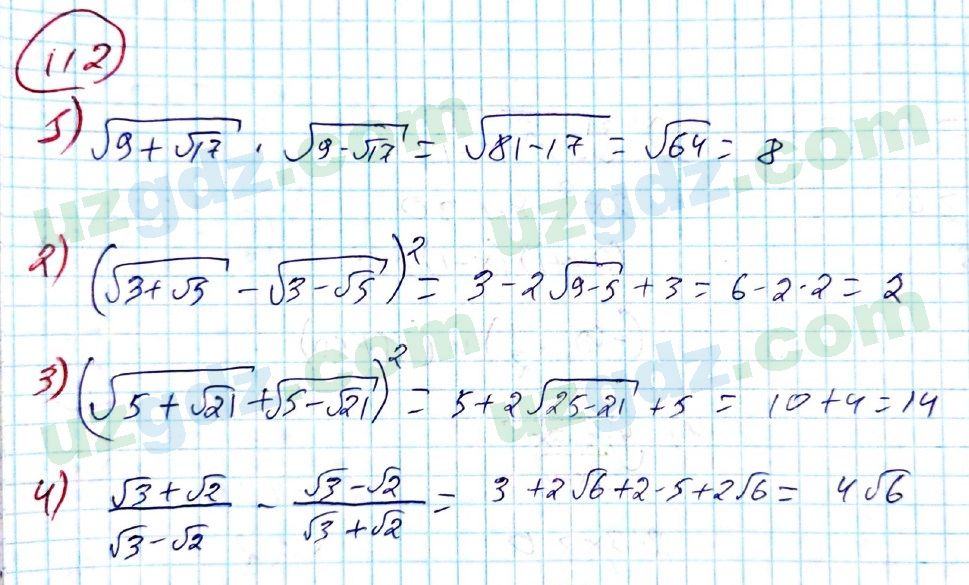 112
1) √(9+√17) · √(9-√17) = √(81-17) = √64 = 8
2) (√(3+√5) - √(3-√5))² = 3-2√(9-5)+3 = 6-2·2 = 2
3) (√(5+√21) + √(5-√21))² = 5+2√(25-21)+5 = 10+4=14
4) (√3+√2)/(√3-√2) - (√3-√2)/(√3+√2) = 3+2√6+2-5+2√6 = 4√6
uzgdz.com uzgdz.com
uzgdz.com uzgdz.com